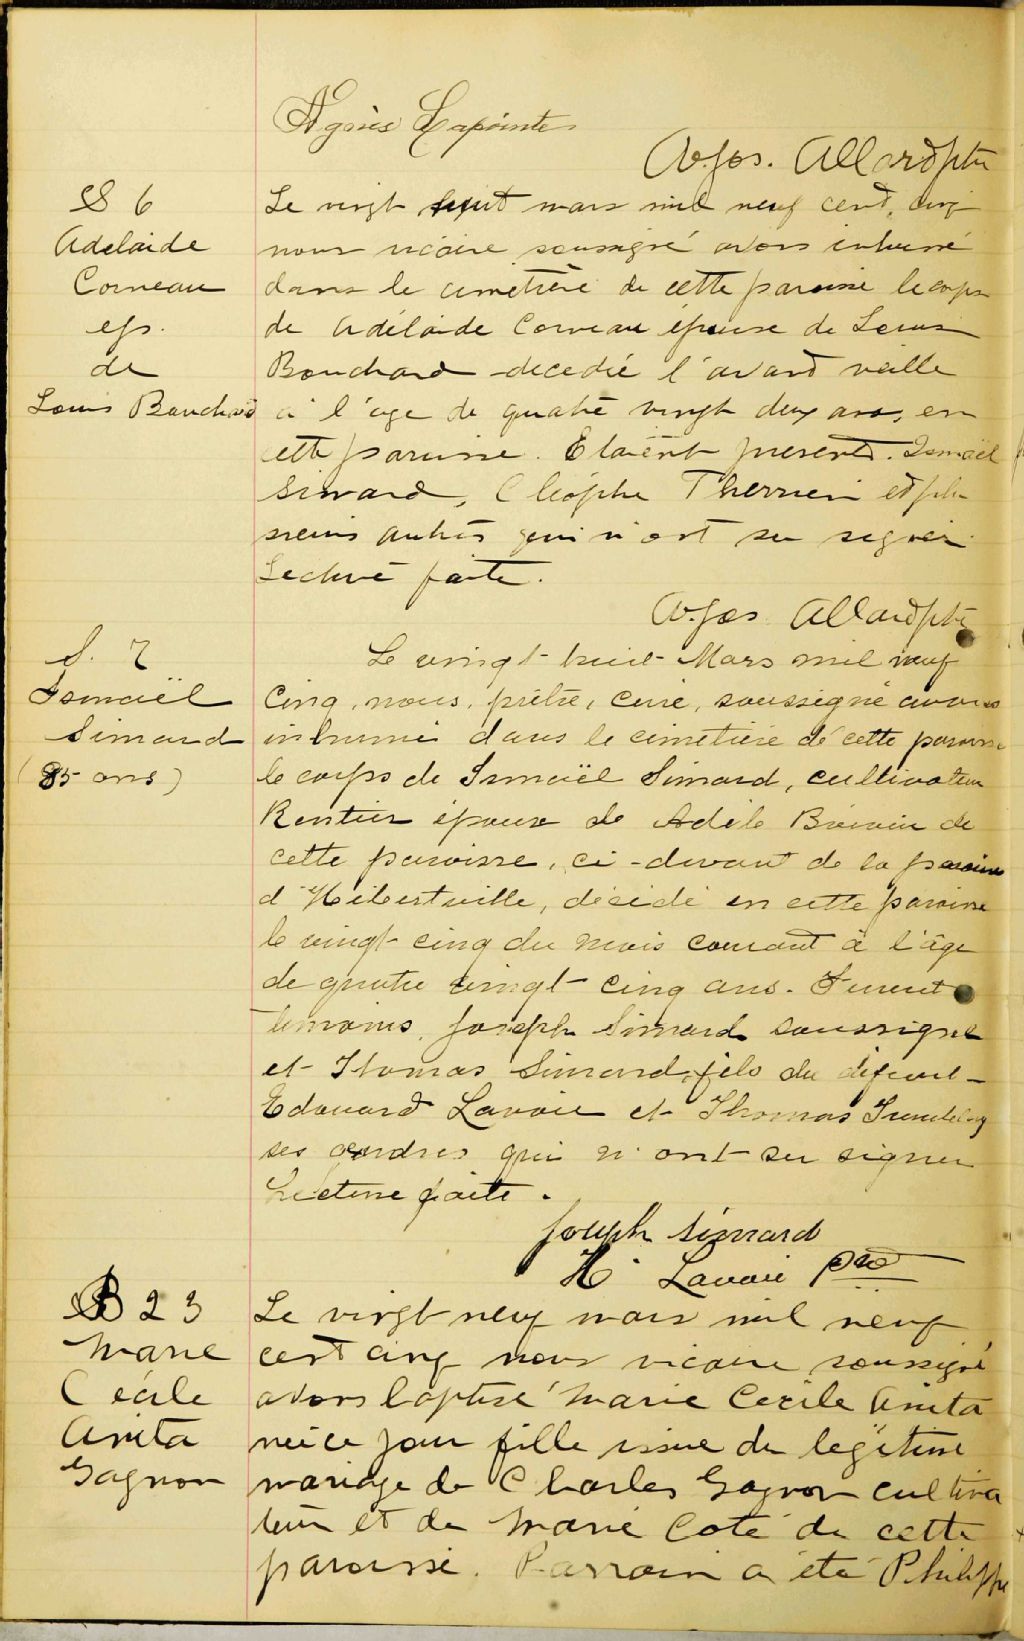 Agnès Lapointe
Av. Jos. Allard ptre
S 6
Adelaide
Corneau
eps.
de
Louis Bouchard
Le vingt huit mars mil neuf cent, cinq
nous vicaire soussigné avons inhumé
dans le cimetière de cette paroisse le corps
de Adélaide Corneau épouse de Louis
Bouchard decedée l'avant veille
a l'age de quatre vingt deux ans, en
cette paroisse. Etaient presents. Ismaël
Simard, Cléophe Therrien et plu
sieurs autres qui n'ont su signer
Lecture faite.
Av. Jos Allard ptre
S. 7
Ismaël
Simard
(85 ans)
Le vingt huit Mars mil neuf
cinq, nous, prêtre, curé, soussigné avons
inhumé dans le cimetière de cette paroisse
le corps de Ismaël Simard, cultivateur
Rentier époux de Adèle de
cette paroisse, ci-devant de la paroisse
d'Hébertville, décédé en cette paroisse
le vingt cinq du mois courant à l'âge
de quatre vingt cinq ans. Furent
temoins, Joseph Simard soussigné
et Thomas Simard, fils du défunt
Edouard Lavoie et Thomas Tremblay
ses gendres qui n'ont su signer
Lecture faite.
Joseph Simard
H. Lavoie ptre
B 23
Marie
Cécile
Anita
Gagnon
Le vingt neuf mars mil neuf
cent cinq nous vicaire soussigné
avons baptisé Marie Cecile Anita
née ce jour fille issue du legitime
mariage de Charles Gagnon cultiva
teur et de Marie Coté de cette
paroisse. Parrain a été Philippe